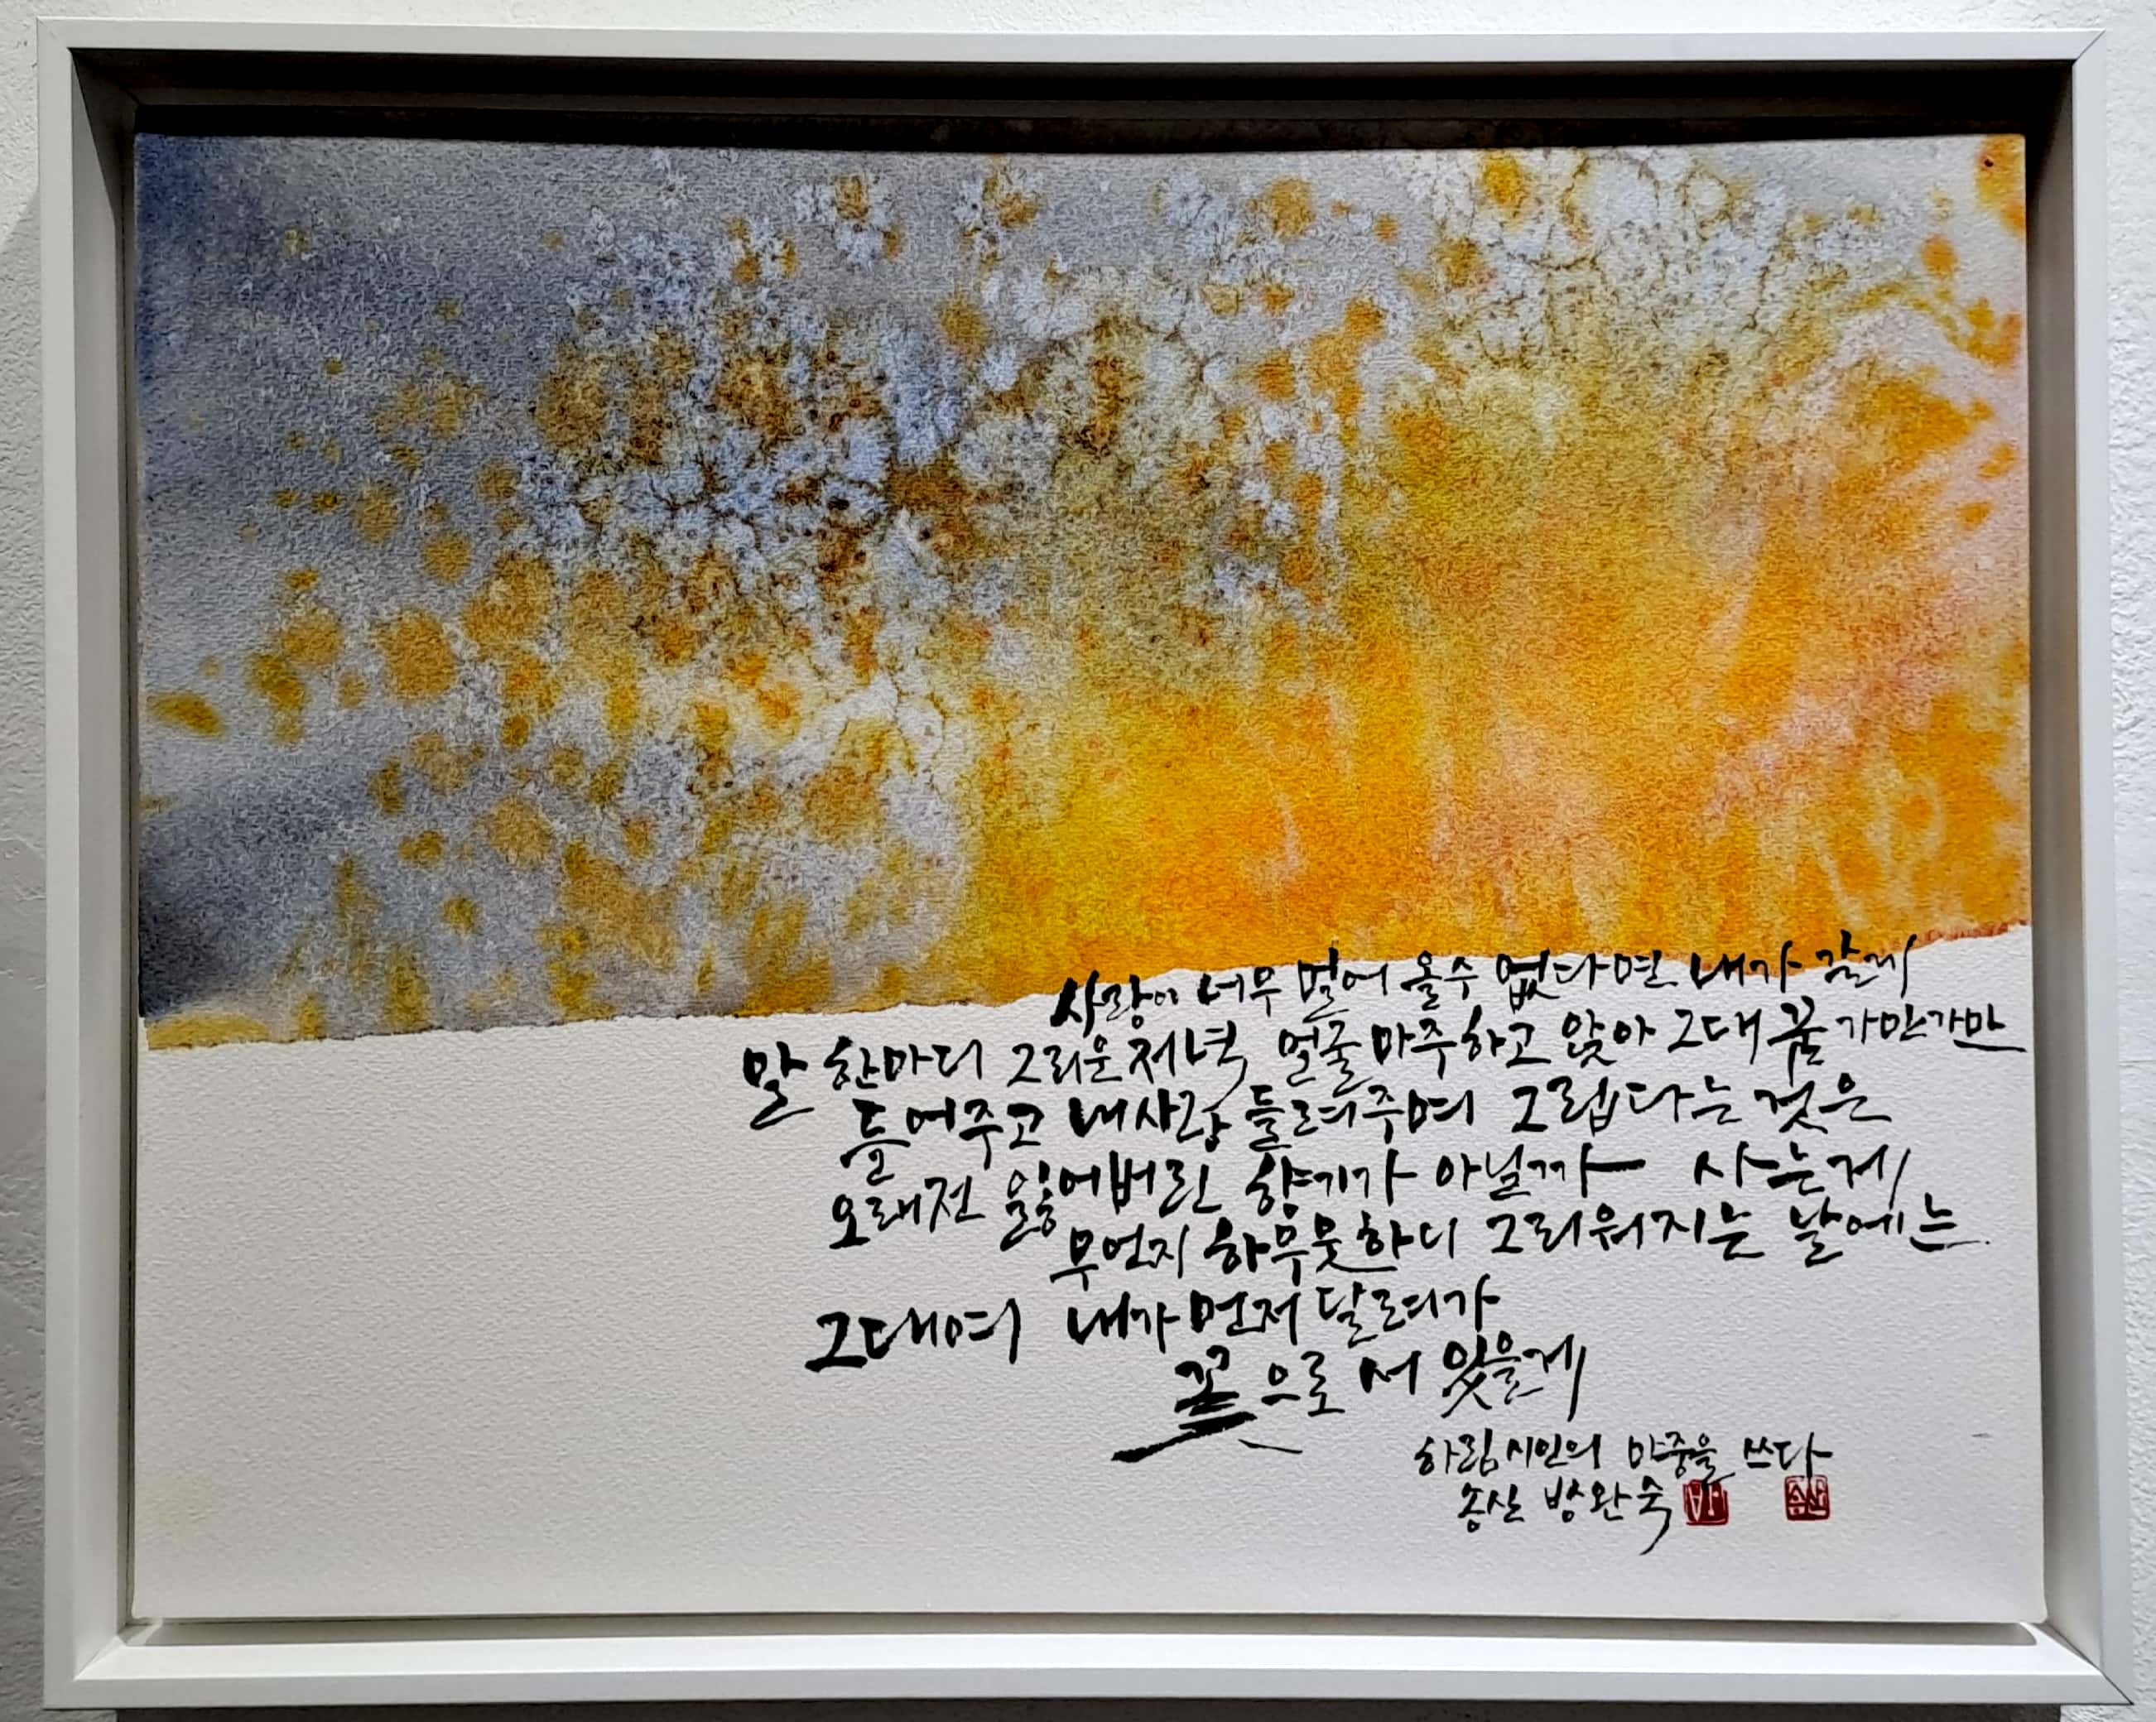 사랑이 너무 멀어 올수 없다면 내가 갈게
말 한마디 그리운 저녁 얼굴 마주하고 앉아 그대 꿈 가만가만
들어주고 내사랑 들려주며 그립다는 것은
오래전 잃어버린 향기가 아닐까 사는게
무언지 하무뭇하니 그리워지는 날에는
그대여 내가 먼저 달려가
꽃으로 서 있을게
하림 시인의 마중을 쓰다
송산 방완숙
송산